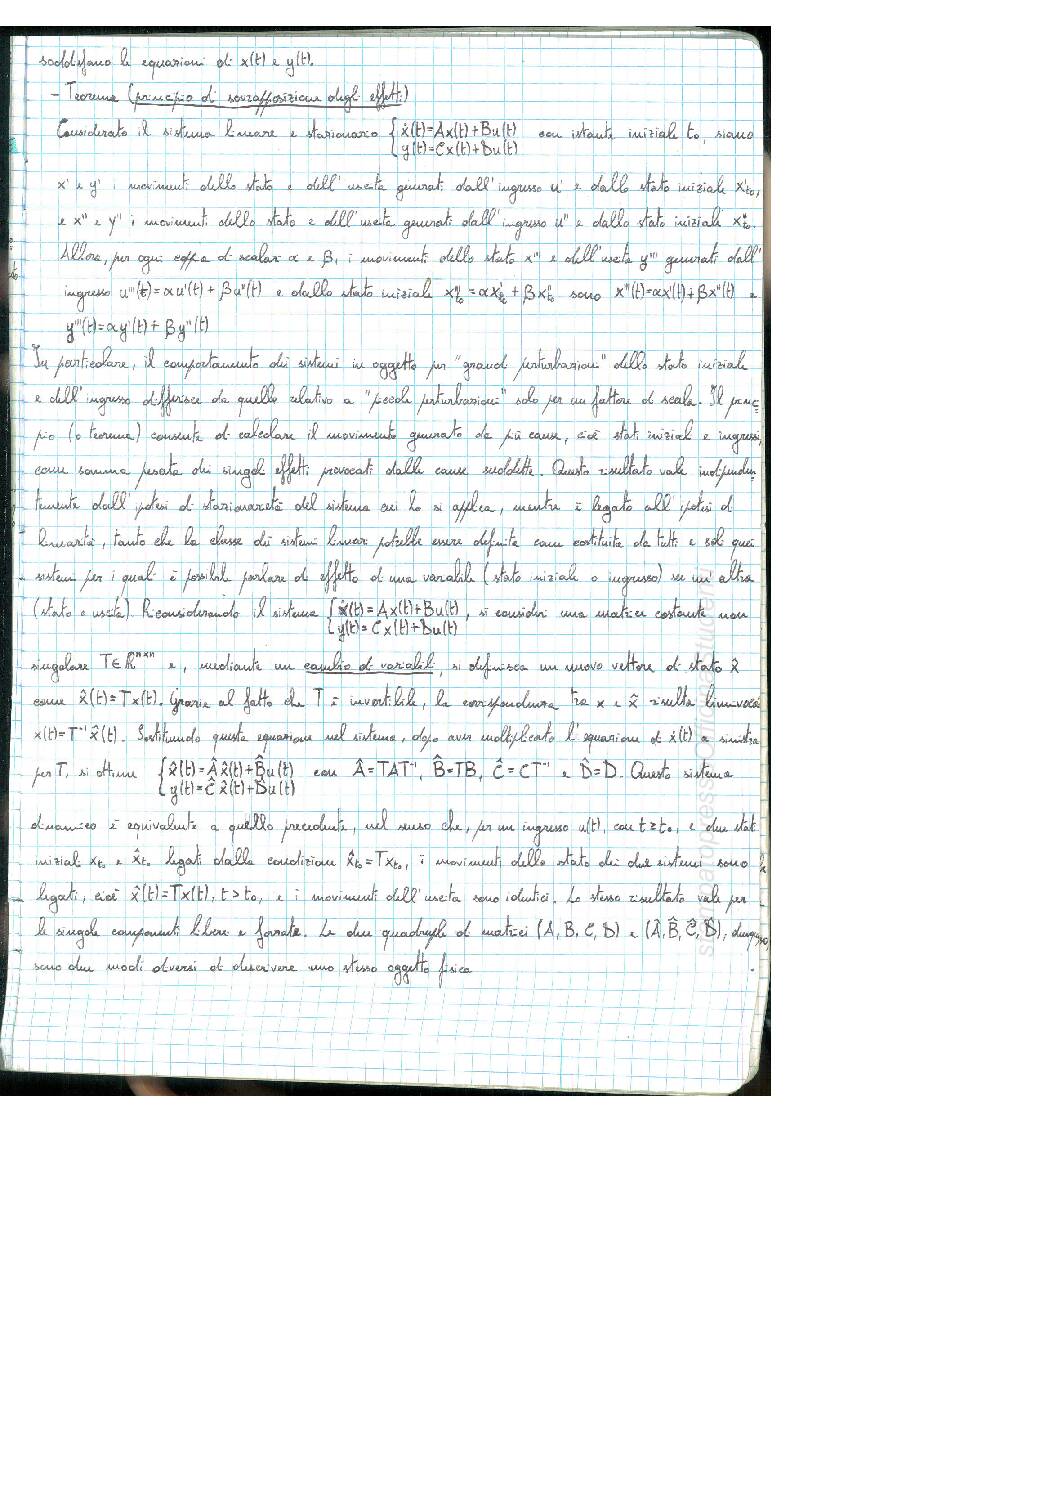 soddisfano le equazioni di x(t) e y(t).
- Teorema (principio di sovrapposizione degli effetti)
Considerato il sistema lineare e stazionario { ẋ(t)=Ax(t)+Bu(t) con istante iniziale t₀, siano
y(t)=Cx(t)+Du(t)
x' e y' i movimenti dello stato e dell'uscita generati dall'ingresso u' e dallo stato iniziale x't₀,
e x'' e y'' i movimenti dello stato e dell'uscita generati dall'ingresso u'' e dallo stato iniziale x''t₀.
Allora, per ogni coppia di scalari α e β, i movimenti dello stato x''' e dell'uscita y''' generati dall'
ingresso u'''(t)=αu'(t)+βu''(t) e dallo stato iniziale x'''t₀=αx't₀+βx''t₀ sono x'''(t)=αx'(t)+βx''(t) e
y'''(t)=αy'(t)+βy''(t)
In particolare, il comportamento dei sistemi in oggetto per "grandi perturbazioni" dello stato iniziale
e dell'ingresso differisce da quello relativo a "piccole perturbazioni" solo per un fattore di scala. Il princi
pio (o teorema) consente di calcolare il movimento generato da più cause, cioè stati iniziali e ingressi,
come somma pesata dei singoli effetti provocati dalle cause suddette. Questo risultato vale indipenden
temente dall'ipotesi di stazionarietà del sistema cui lo si applica, mentre è legato all'ipotesi di
linearità, tanto che la classe dei sistemi lineari potrebbe essere definita come costituita da tutti e soli quei
sistemi per i quali è possibile parlare di effetto di una variabile (stato iniziale o ingresso) su un'altra
(stato e uscita). Riconsiderando il sistema { ẋ(t)=Ax(t)+Bu(t), si consideri una matrice costante non
y(t)=Cx(t)+Du(t)
singolare T∈R^{n×n} e, mediante un cambio di variabili, si definisca un nuovo vettore di stato x̂
come x̂(t)=Tx(t). Grazie al fatto che T è invertibile, la corrispondenza tra x e x̂ risulta biunivoca:
x(t)=T⁻¹x̂(t). Sostituendo questa equazione nel sistema, dopo aver moltiplicato l'equazione di ẋ(t) a sinistra
per T, si ottiene { x̂̇(t)=Âx̂(t)+B̂u(t) con Â=TAT⁻¹, B̂=TB, Ĉ=CT⁻¹ e D̂=D. Questo sistema
y(t)=Ĉx̂(t)+D̂u(t)
dinamico è equivalente a quello precedente, nel senso che, per un ingresso u(t), con t≥t₀, e due stati
iniziali xt₀ e x̂t₀ legati dalla condizione x̂t₀=Txt₀, i movimenti dello stato dei due sistemi sono
legati, cioè x̂(t)=Tx(t), t>t₀, e i movimenti dell'uscita sono identici. Lo stesso risultato vale per
le singole componenti libere e forzate. Le due quadruple di matrici (A,B,C,D) e (Â,B̂,Ĉ,D̂), dunque,
sono due modi diversi di descrivere uno stesso oggetto fisico